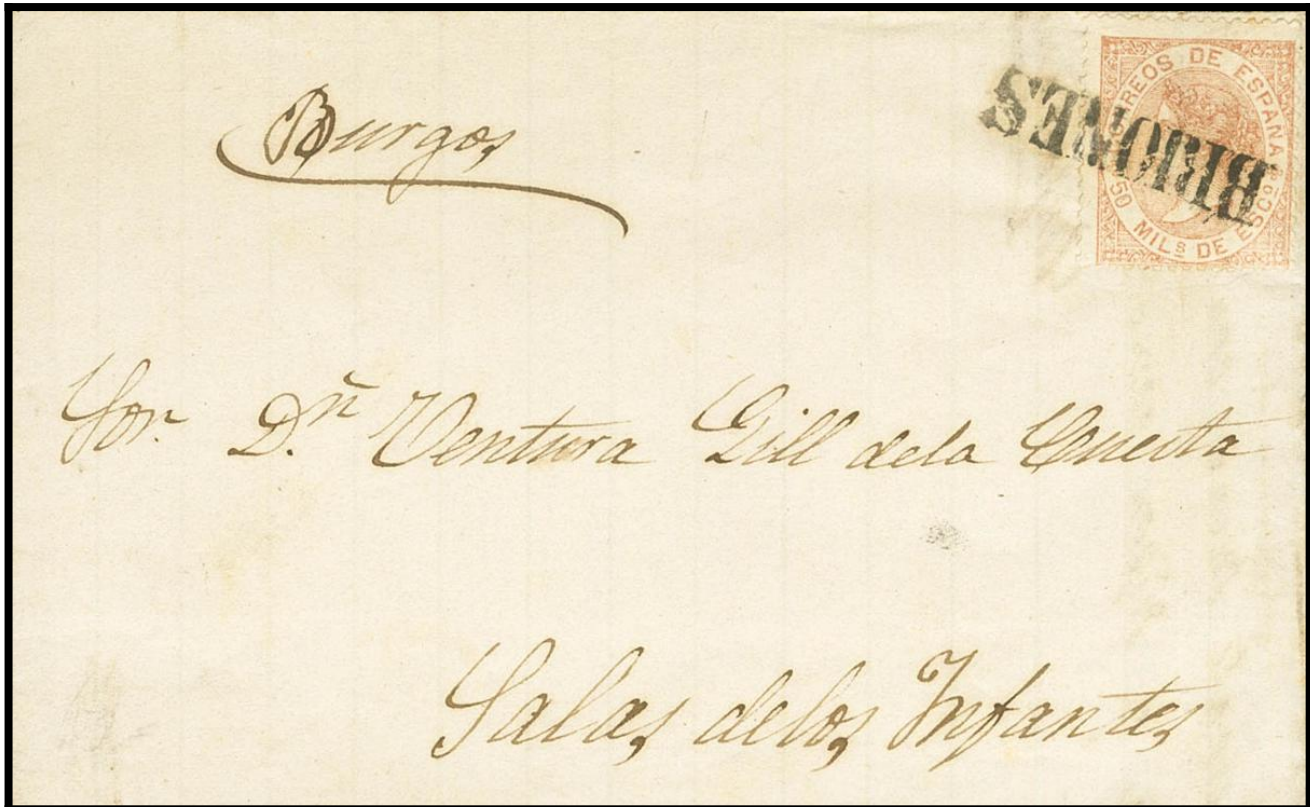 Burgos
CORREOS DE ESPAÑA
50 MILS DE ESCOS
BRIONES
Sor. Dn Ventura Gill dela Cuesta
Salas delos Infantes